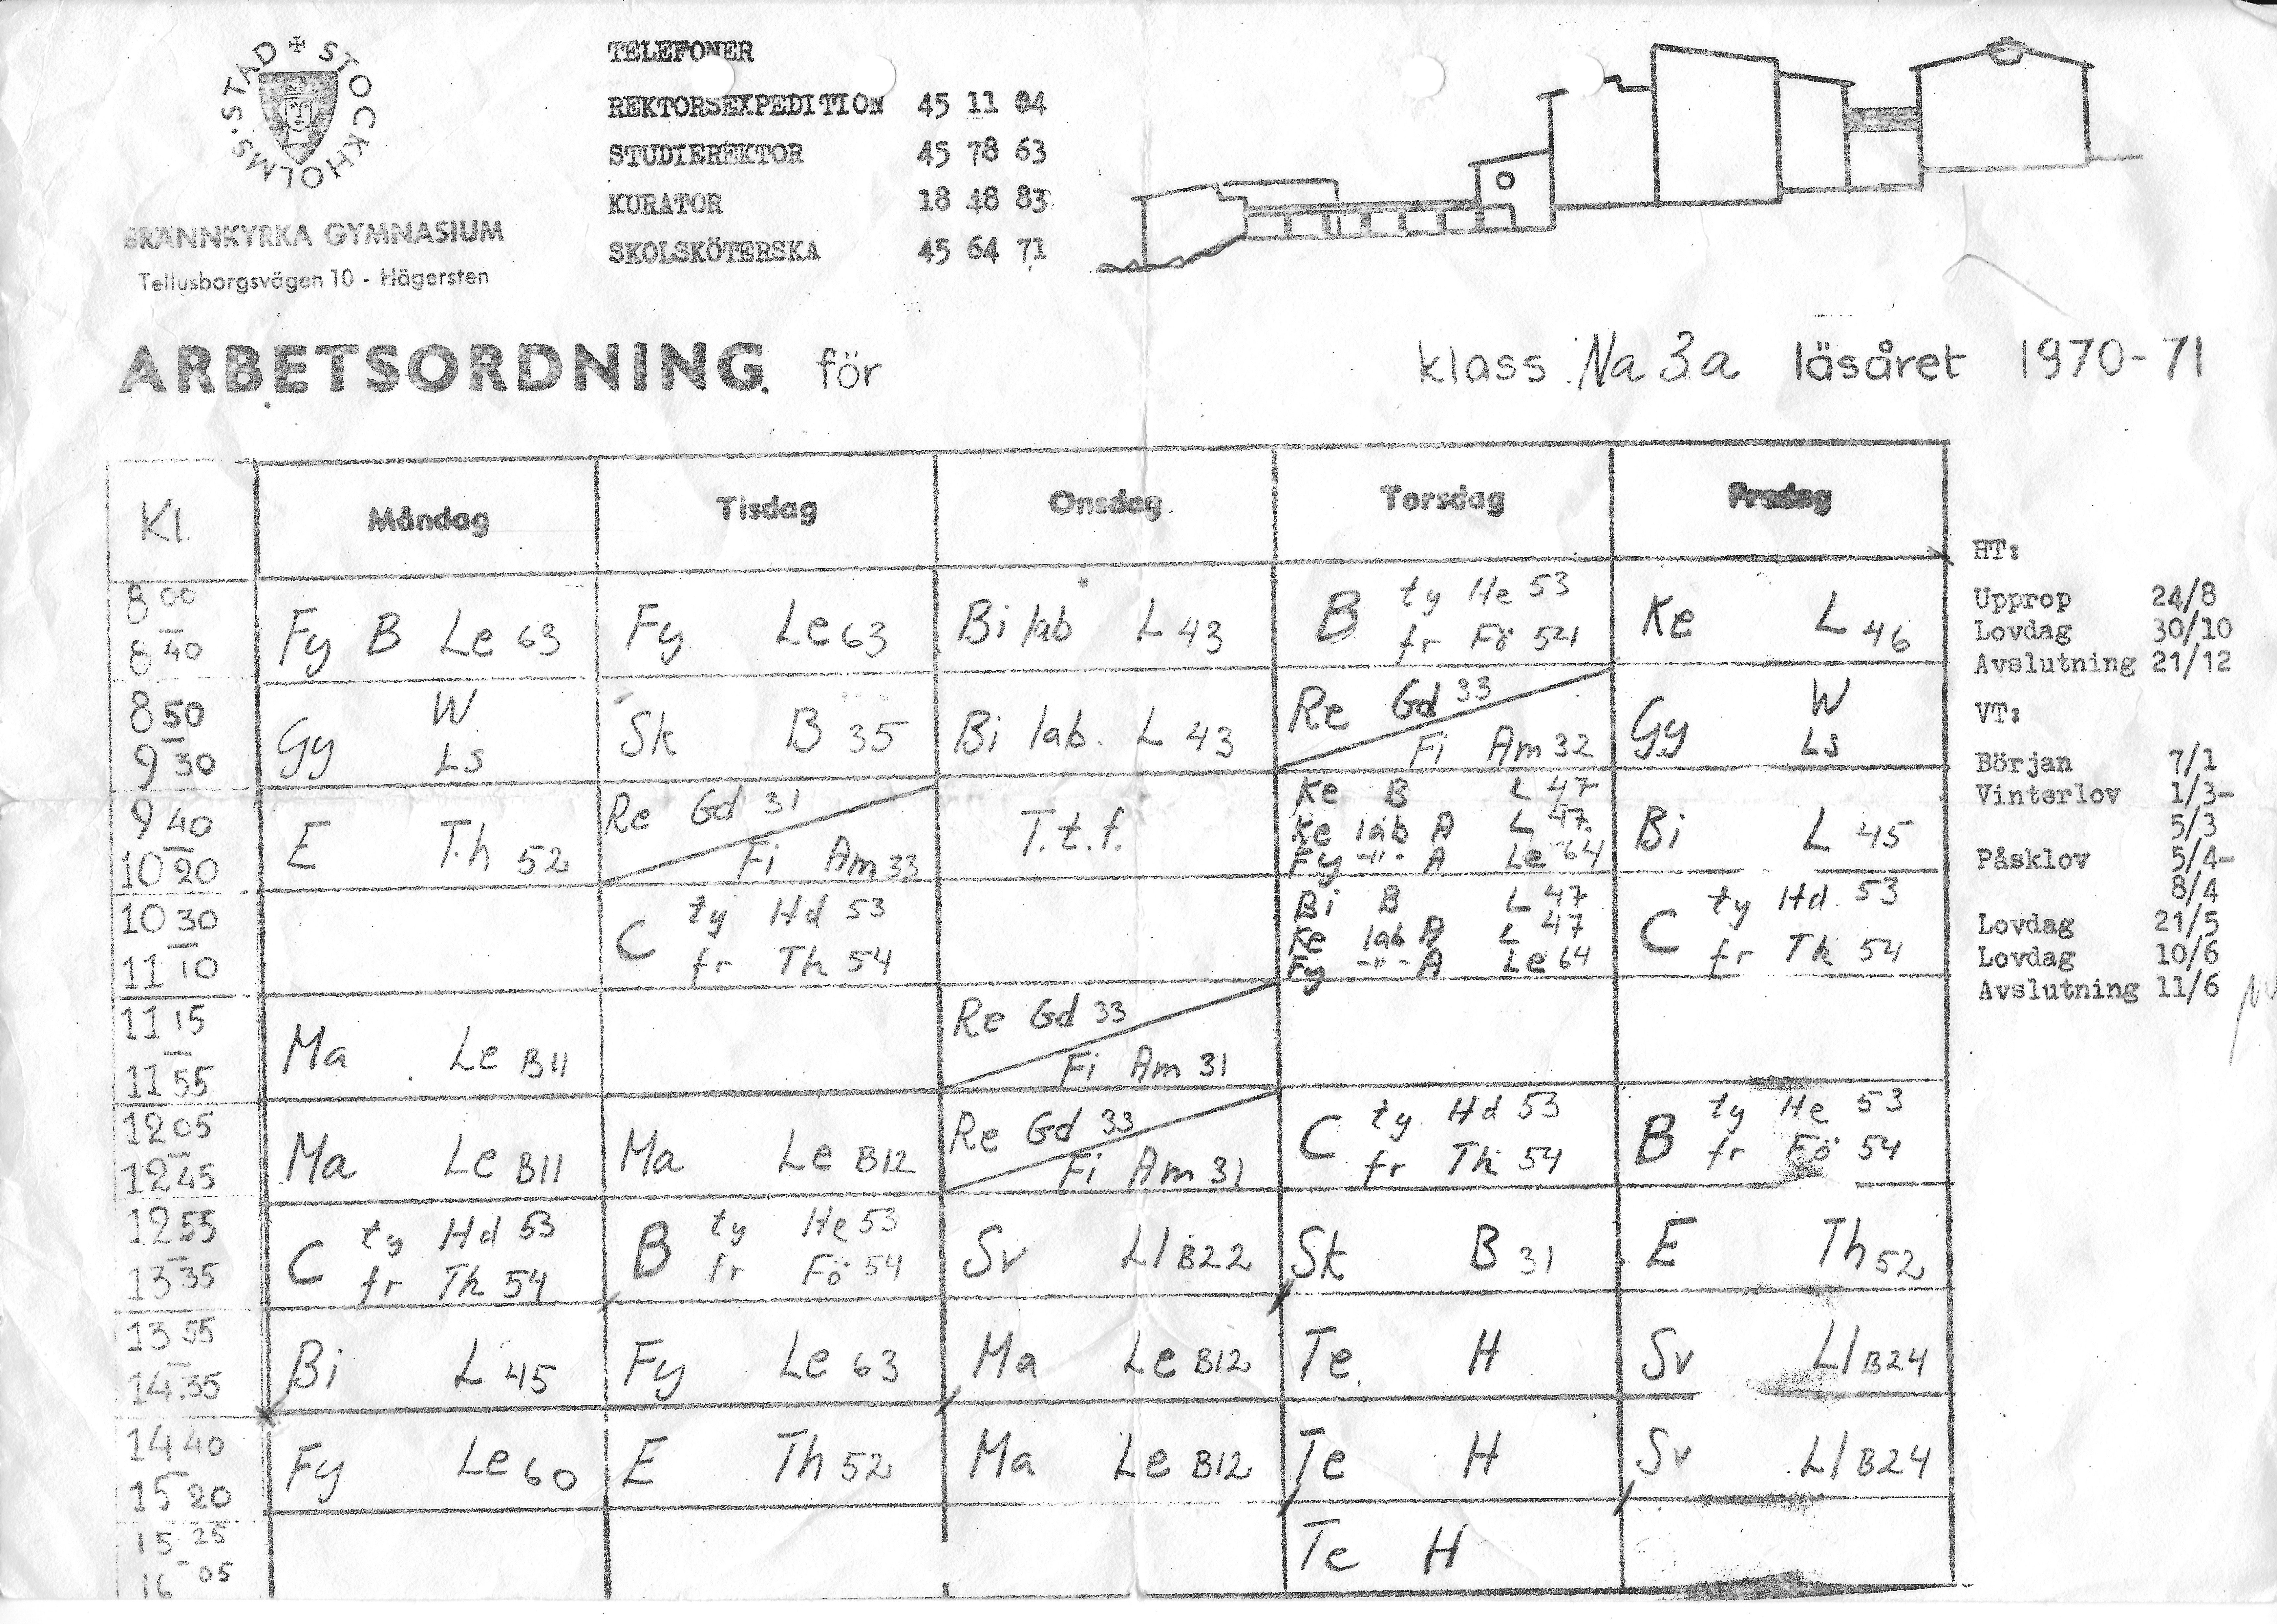 STOCKHOLMS STAD
BRÄNNKYRKA GYMNASIUM
Tellusborgsvägen 10 - Hägersten
TELEFONER
REKTORSEXPEDITION 45 11 04
STUDIEREKTOR 45 78 63
KURATOR 18 48 83
SKOLSKÖTERSKA 45 64 71
ARBETSORDNING för klass Na 3a läsåret 1970-71
Kl. Måndag Tisdag Onsdag Torsdag Fredag
8 00 - 8 40
Fy B Le 63
Fy Le 63
Bi lab L 43
B ty He 53
fr Fö 54
Ke L 46
8 50 - 9 30
Gy W
Ls
Sk B 35
Bi lab. L 43
Re Gd 33
Fi Am 32
Gy W
Ls
9 40 - 10 20
E Th 52
Re Gd 31
Fi Am 33
T.t.f.
Ke B L 47
Ke lab A L 47
Fy -"- A Le 64
Bi L 45
10 30 - 11 10
C ty Hd 53
fr Th 54
Bi B L 47
Ke lab A L 47
Fy -"- A Le 64
C ty Hd 53
fr Th 54
11 15 - 11 55
Ma Le B11
Re Gd 33
Fi Am 31
12 05 - 12 45
Ma Le B11
Ma Le B12
Re Gd 33
Fi Am 31
C ty Hd 53
fr Th 54
B ty He 53
fr Fö 54
12 55 - 13 35
C ty Hd 53
fr Th 54
B ty He 53
fr Fö 54
Sv Ll B22
Sk B 31
E Th 52
13 55 - 14.35
Bi L 45
Fy Le 63
Ma Le B12
Te H
Sv Ll B24
14 40 - 15 20
Fy Le 60
E Th 52
Ma Le B12
Te H
Sv Ll B24
15 25 - 16 05
Te H
HT:
Upprop 24/8
Lovdag 30/10
Avslutning 21/12
VT:
Början 7/1
Vinterlov 1/3-
5/3
Påsklov 5/4-
8/4
Lovdag 21/5
Lovdag 10/6
Avslutning 11/6